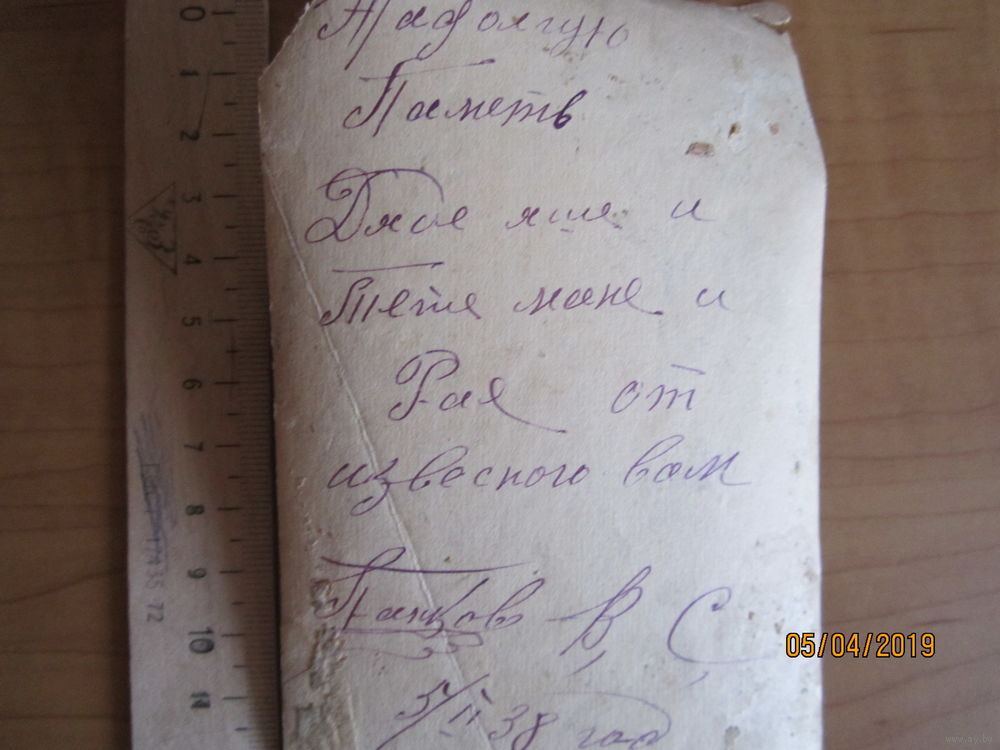 Надолгую
Паметь
Дяде яше и
Тете мане и
Рае от
извесного вам
Панков В, С,
5/II 38 год
05/04/2019
0 1 2 3 4 5 6 7 8 9 10 11
www.ay.by